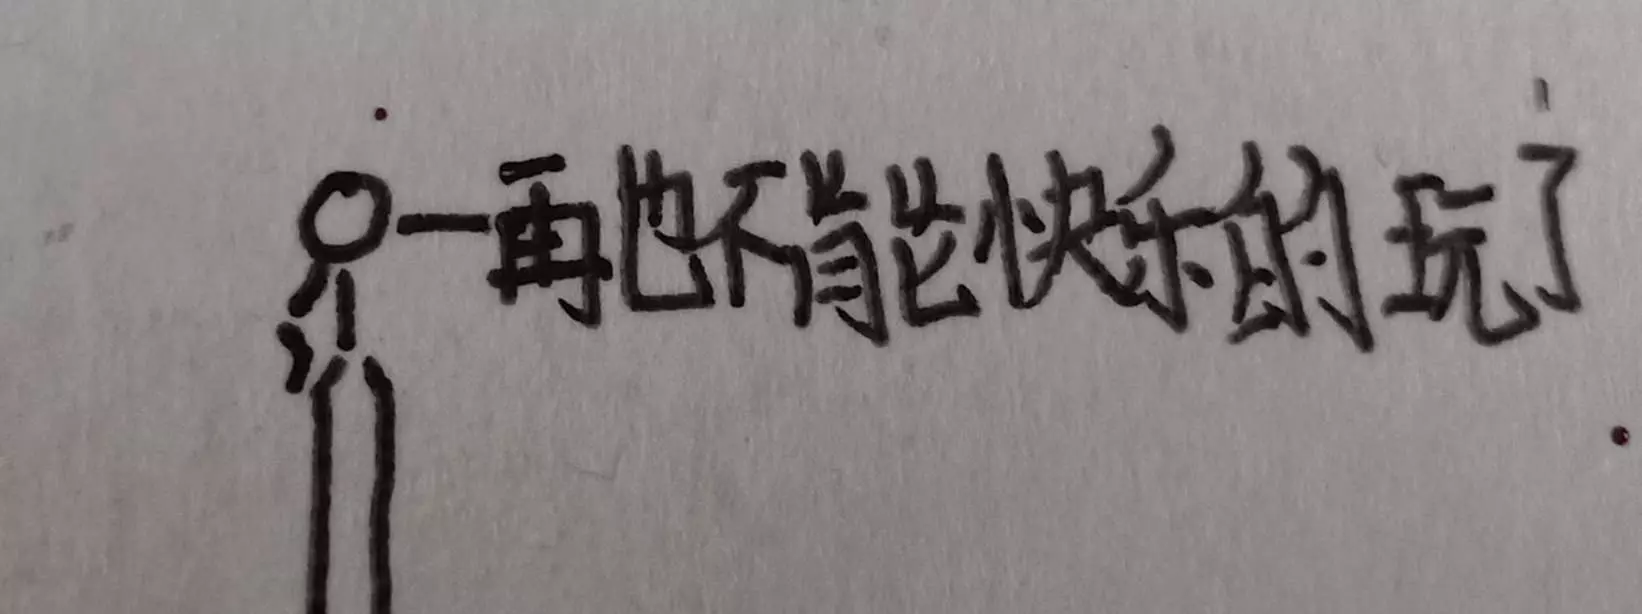 再也不能快乐的玩了